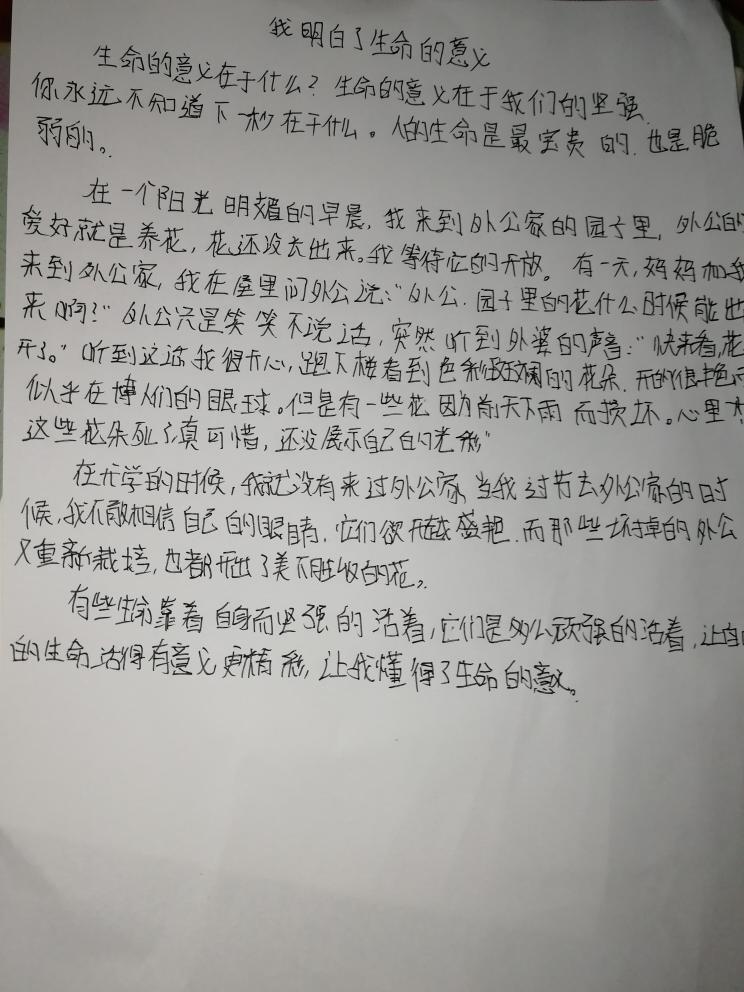 我明白了生命的意义
生命的意义在于什么？生命的意义在于我们的坚强.
你永远不知道下一秒在干什么。人的生命是最宝贵的.也是脆
弱的。
在一个阳光明媚的早晨,我来到外公家的园子里,外公的
爱好就是养花,花还没长出来。我等待它的开放。有一天,妈妈和我
来到外公家,我在屋里问外公说:“外公.园子里的花什么时候能出
来啊?”外公只是笑笑不说话,突然听到外婆的声音:“快来看,花
开了。”听到这话我很开心,跑下楼看到色彩斑斓的花朵.开的很艳
似乎在博人们的眼球。但是有一些花因为前天下雨而损坏。心里
这些花朵死了真可惜,还没展示自己的光彩”
在开学的时候,我就没有来过外公家,当我过节去外公家的时
候,我不敢相信自己的眼睛,它们欲开越盛艳.而那些坏掉的外公
又重新栽培,也都开出了美不胜收的花,。
有些生命靠着自身而坚强的活着,它们是多么顽强的活着,让自
的生命活得有意义更精彩,让我懂得了生命的意义。